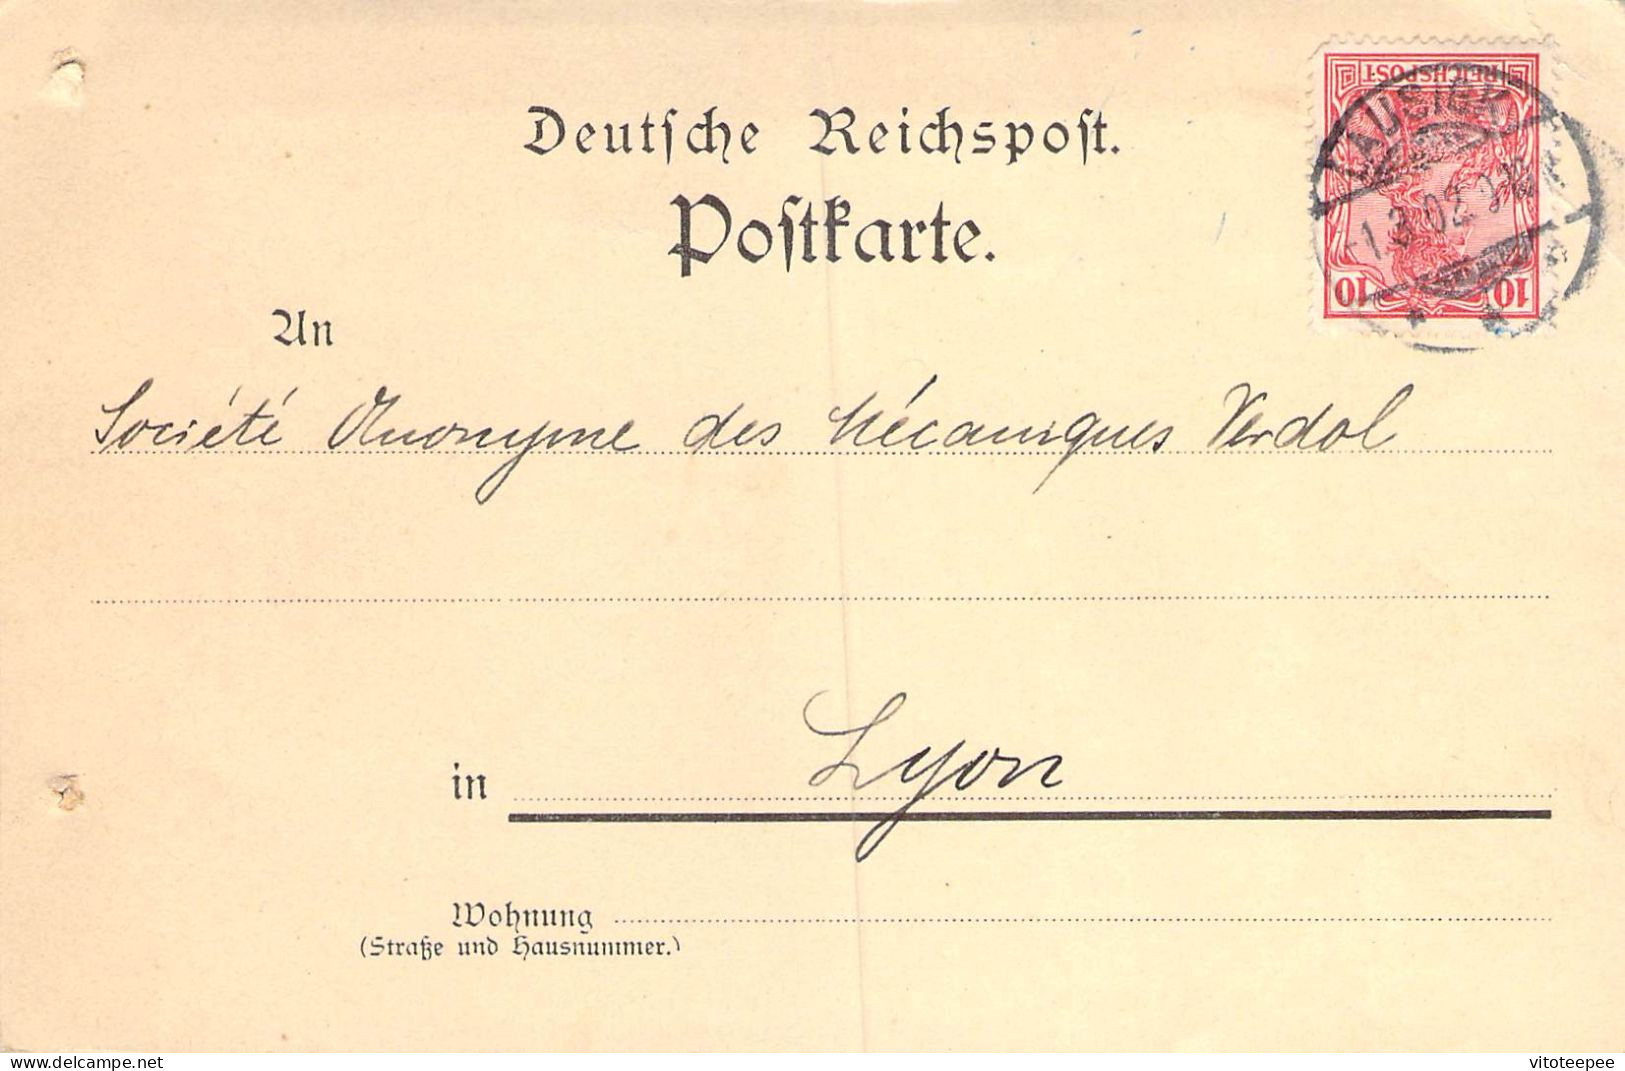 Deutsche Reichspost.
Postkarte.
REICHSPOST
10 10
LAUSIGK
1.3.02.
An
Société Anonyme des Mécaniques Verdol
in Lyon
Wohnung
(Straße und Hausnummer.)
vitoteepee